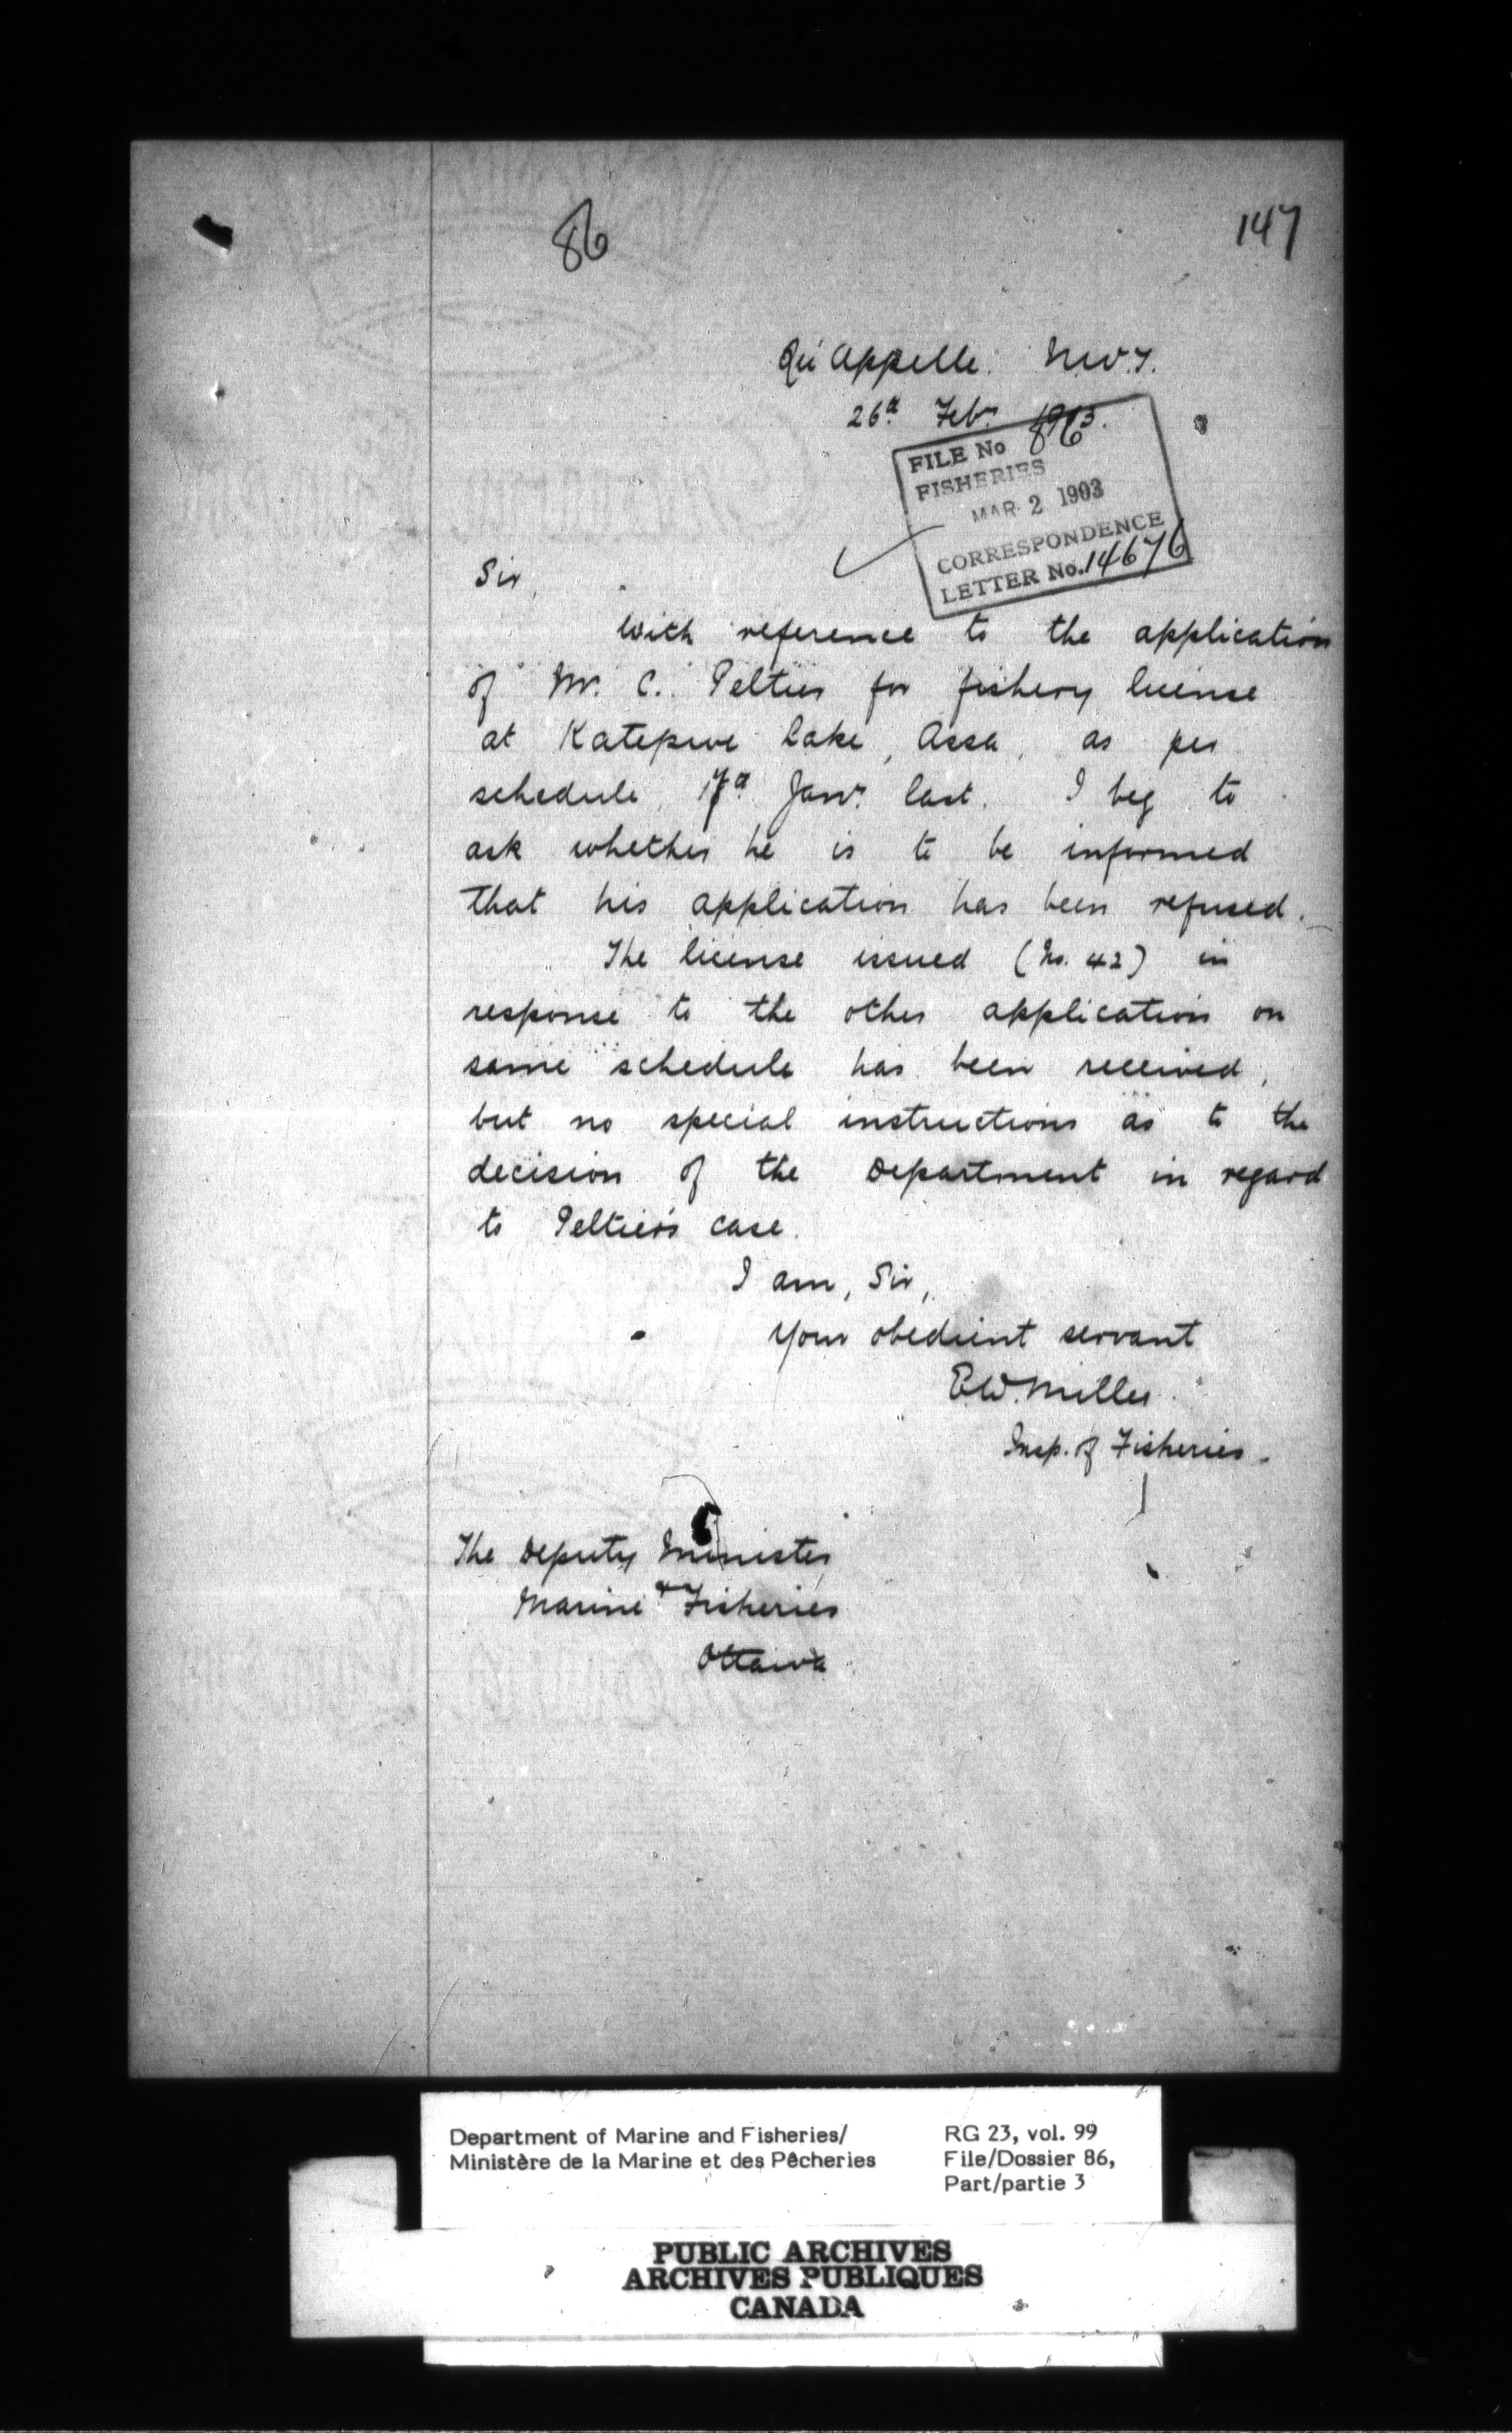 86
147
Qu'Appelle. N.W.T.
26th Feby. 1903.
FILE No 86
FISHERIES
MAR 2 1903
CORRESPONDENCE
LETTER No. 14676
Sir,
With reference to the application
of Mr. C. Peltier for fishery license
at Katepwe Lake, Assa, as per
schedule, Jany. last. I beg to
ask whether he is to be informed
that his application has been refused.
The license issued (No. 42) in
response to the other application on
same schedule has been received,
but no special instructions as to the
decision of the Department in regard
to Peltier's case.
I am, Sir,
Your obedient servant
E.W. Miller
Insp. of Fisheries.
The Deputy Minister
Marine & Fisheries
Ottawa
Department of Marine and Fisheries/
Ministère de la Marine et des Pêcheries
RG 23, vol. 99
File/Dossier 86,
Part/partie 3
PUBLIC ARCHIVES
ARCHIVES PUBLIQUES
CANADA